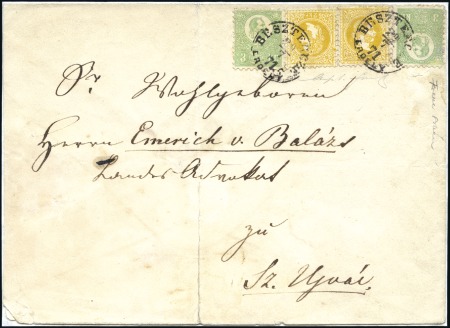 BESZTERCZE
71
BESZTERCZE
71
Sr Wohlgeboren
Herrn Emerich v. Balázs
Landes Advokat
zu
Sz. Ujvár.